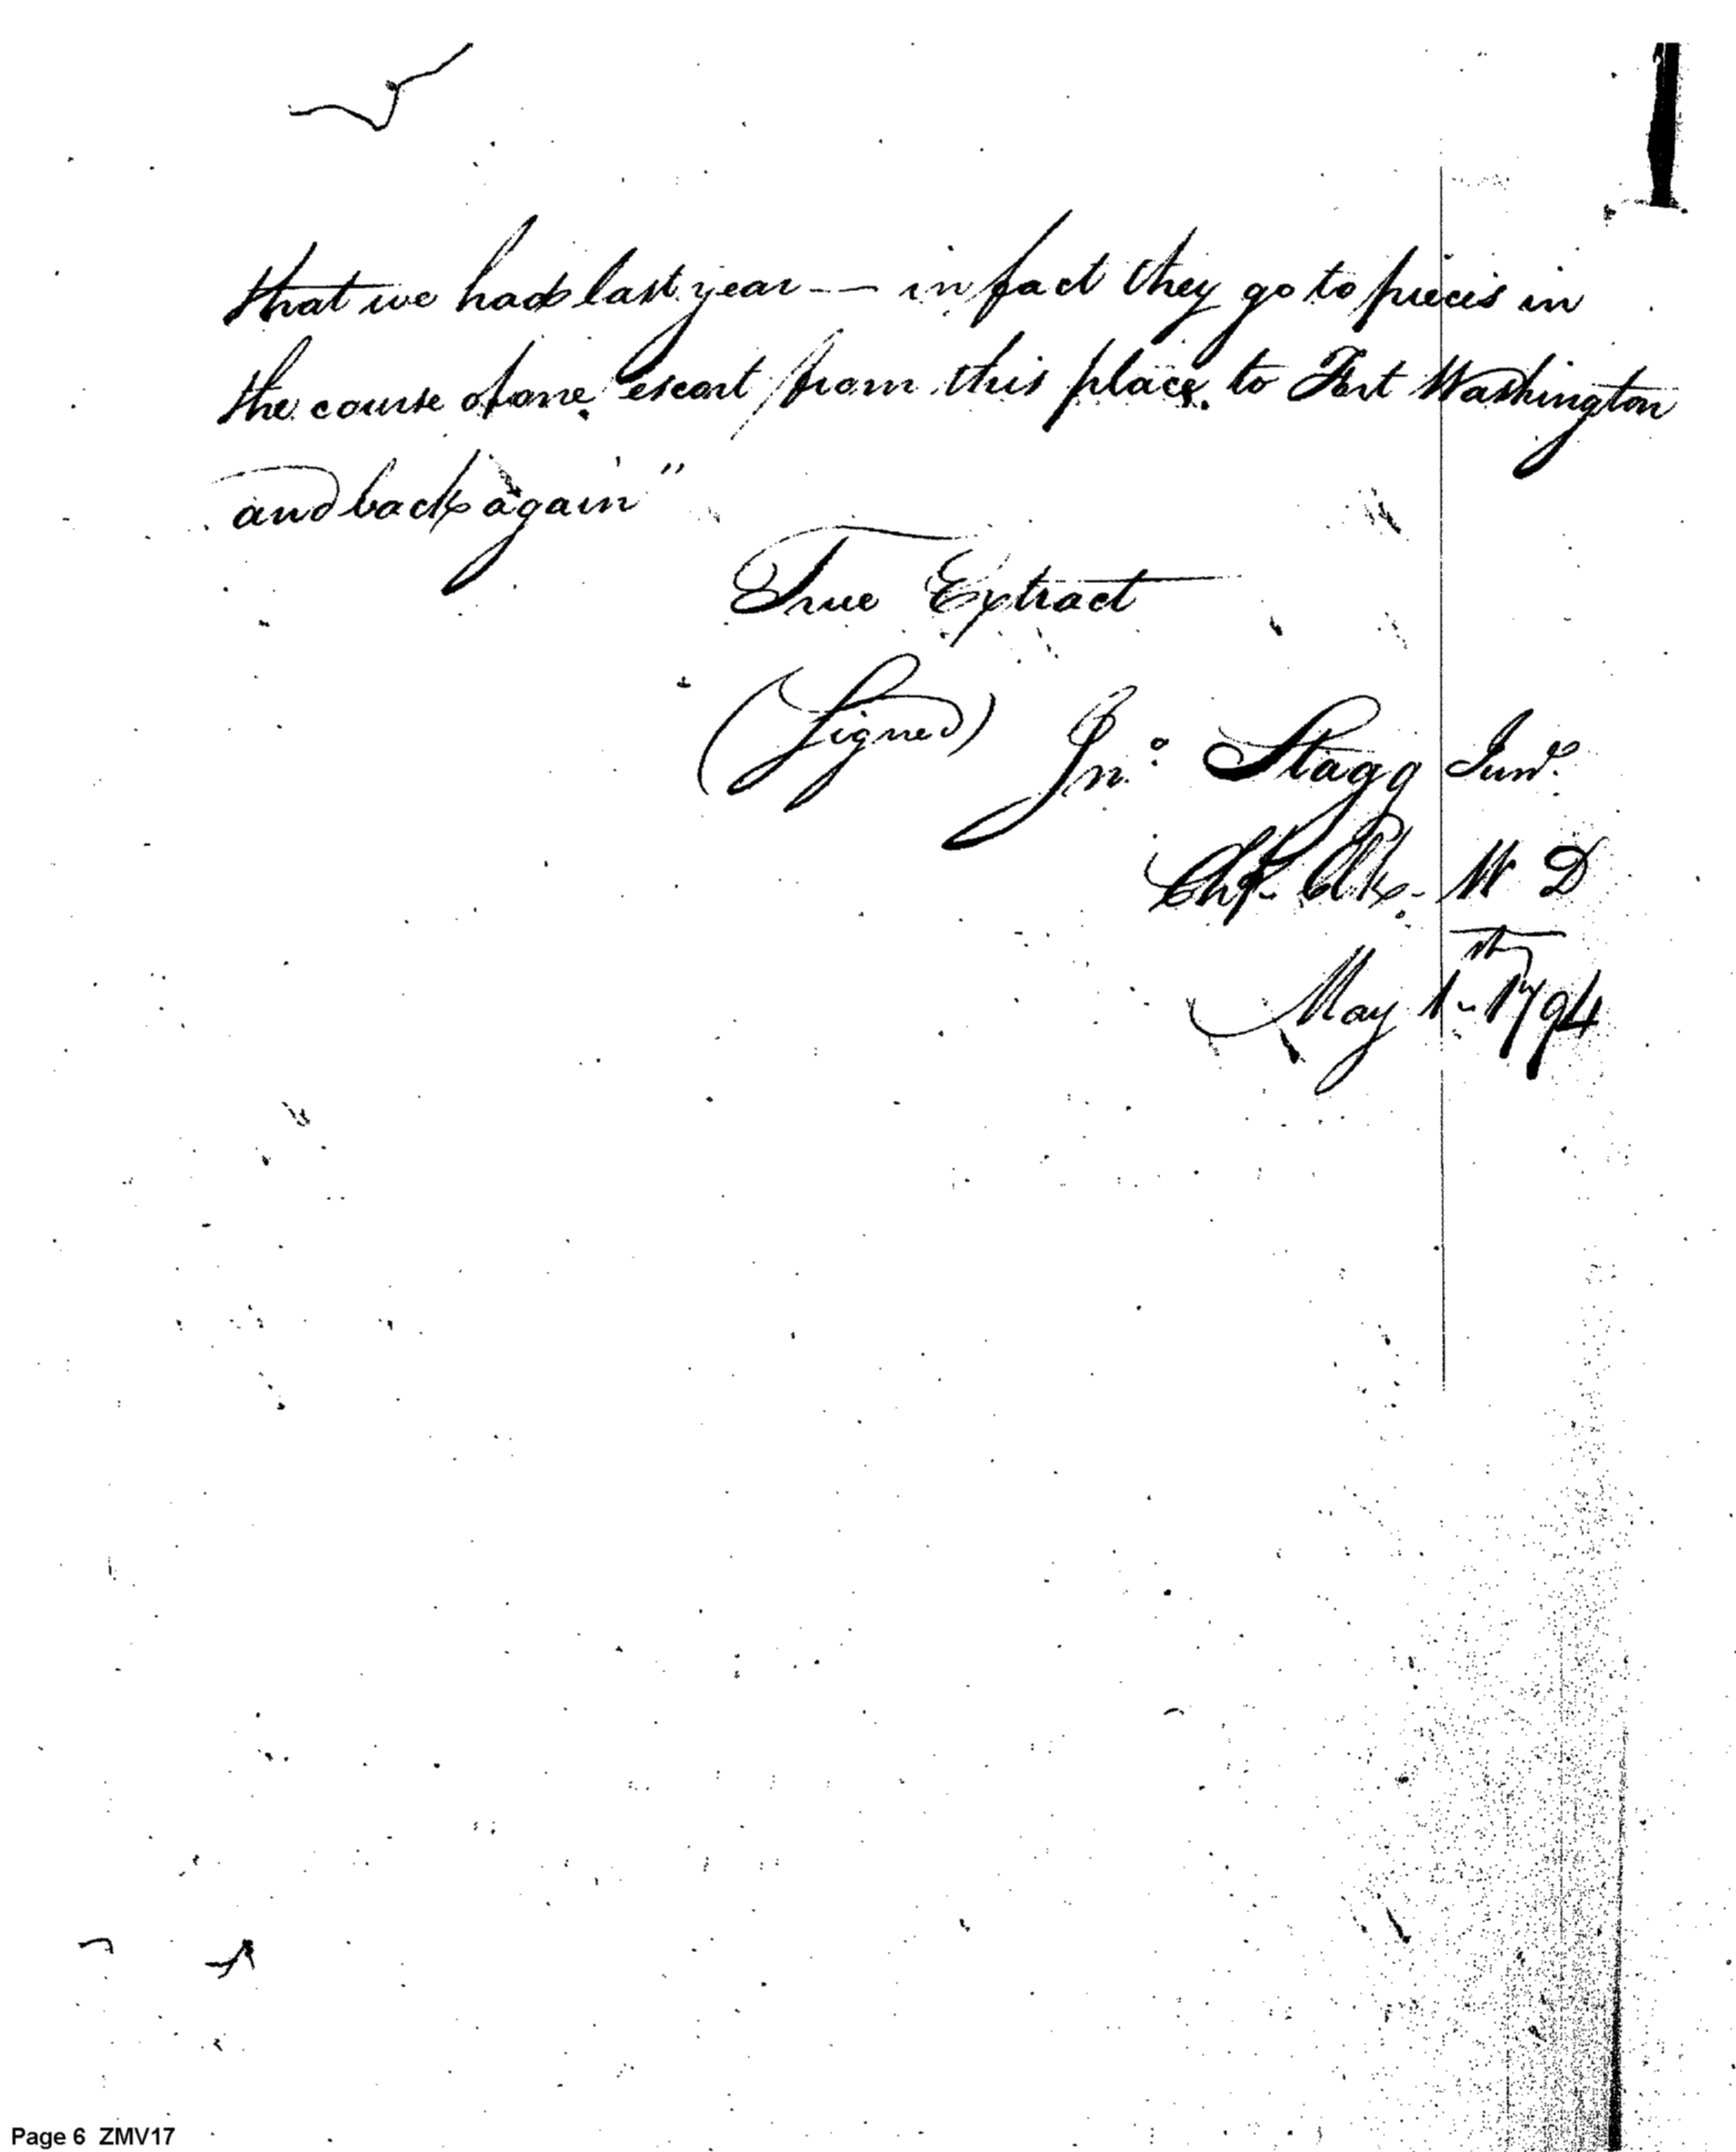 that we had last year -- in fact they go to pieces in
the course of one escort from this place to Fort Washington
and back again"
True Extract
(Signed) Jno. Stagg Junr.
Chf. Clk. W D
May 1st 1794
Page 6 ZMV17